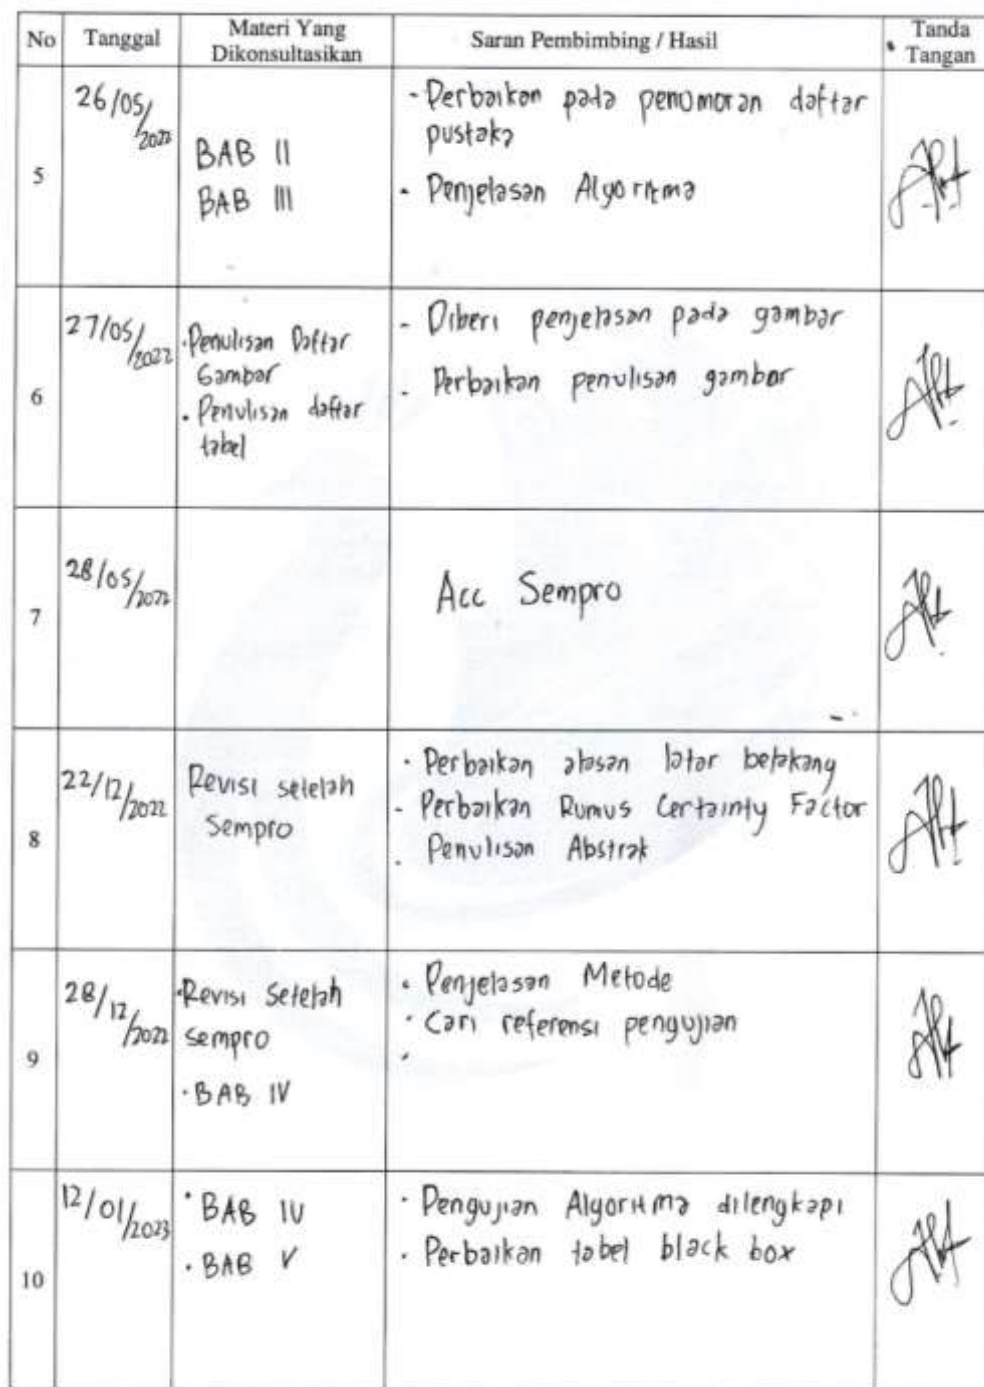 No Tanggal Materi Yang Dikonsultasikan Saran Pembimbing / Hasil Tanda Tangan
5
26/05/2022
BAB II
BAB III
- Perbaikan pada penomoran daftar
pustaka
- Penjelasan Algoritma
6
27/05/2022
· Penulisan Daftar
Gambar
· Penulisan daftar
tabel
- Diberi penjelasan pada gambar
- Perbaikan penulisan gambar
7
28/05/2022
Acc Sempro
8
22/12/2022
Revisi setelah
Sempro
· Perbaikan alasan latar belakang
- Perbaikan Rumus Certainty Factor
. Penulisan Abstrak
9
28/12/2022
· Revisi Setelah
sempro
· BAB IV
· Penjelasan Metode
· Cari referensi pengujian
10
12/01/2023
· BAB IV
· BAB V
· Pengujian Algoritma dilengkapi
· Perbaikan tabel black box